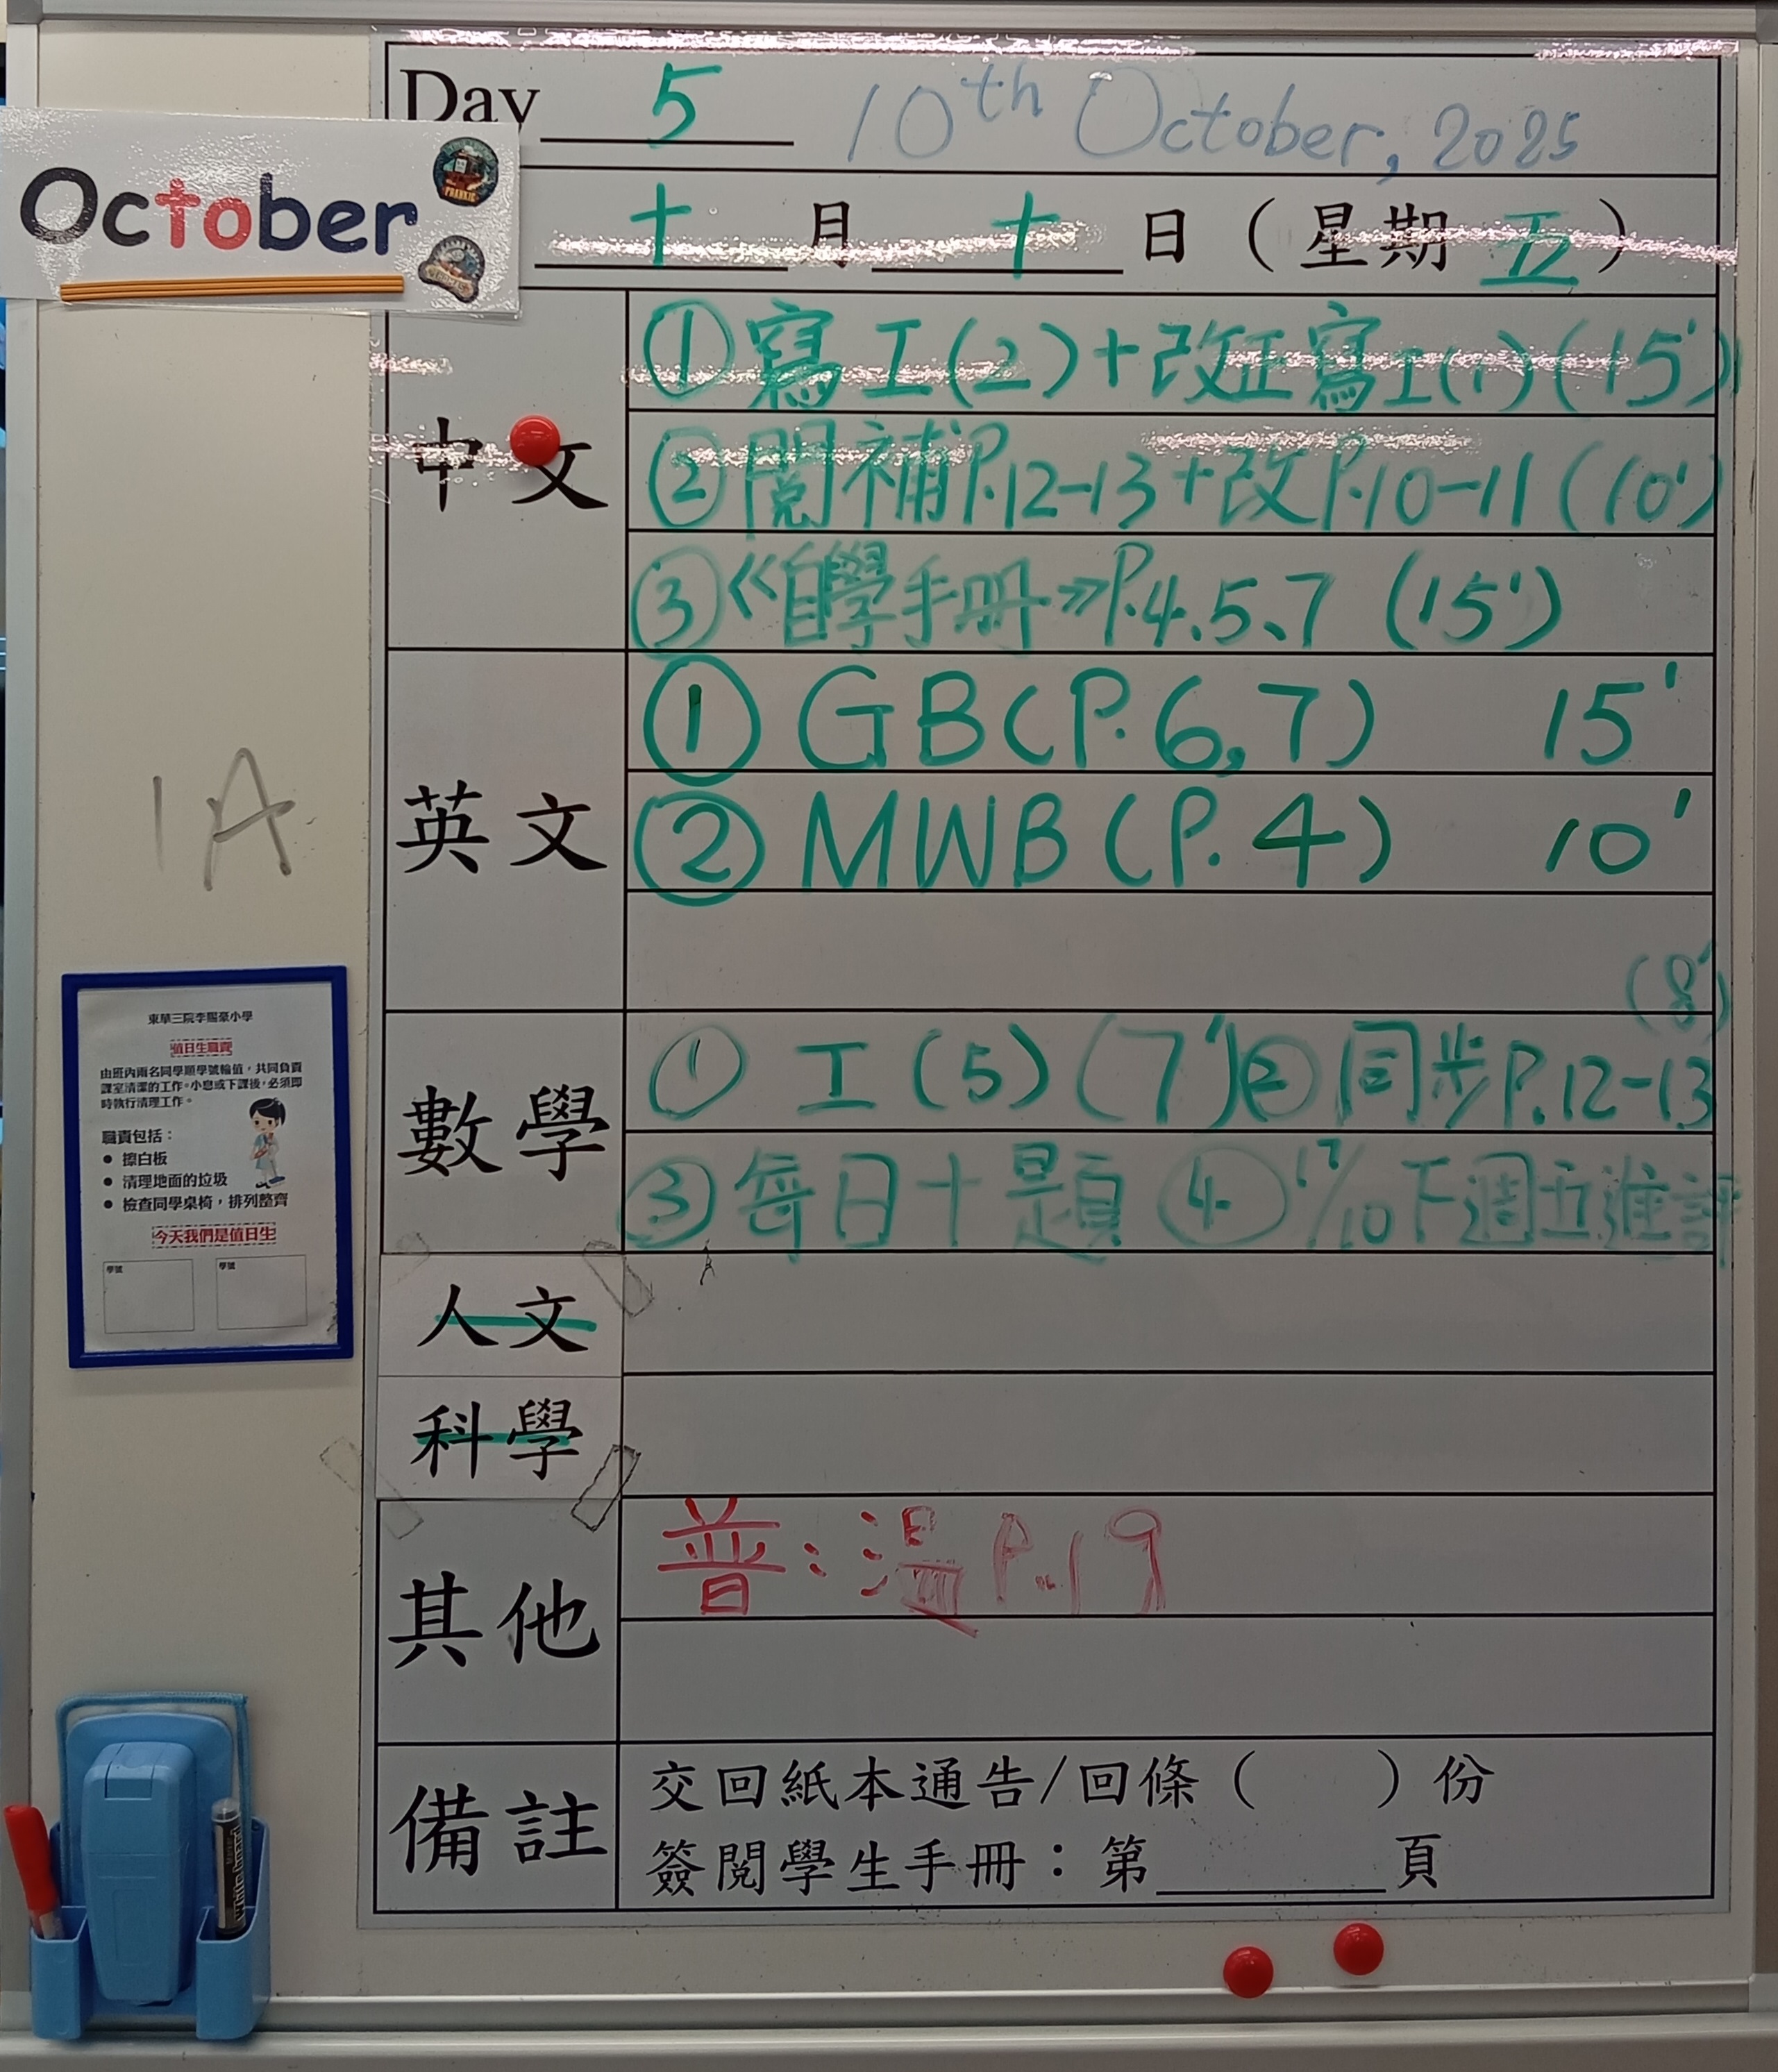 Day 5 10th October, 2025
October
十 月 十 日 ( 星 期 五 )
中文
①寫工(2)+改正寫工(1)(15')
②閱補P.12-13+改P.10-11(10')
③《自學手冊》P.4、5、7 (15')
英文
① GB(P.6,7) 15'
② MWB(P.4) 10'
1A
數學
(8')
① 工(5)(7')②同步P.12-13
③每日十題 ④17/10下週五進評
人文
科學
其他
普:P.19
備註
交回紙本通告/回條( )份
簽閱學生手冊:第 頁
東華三院李賜豪小學
值日生職責
由班內兩名同學順學號輪值,共同負責
課室清潔的工作。小息或下課後,必須即
時執行清理工作。
職責包括:
● 擦白板
● 清理地面的垃圾
● 檢查同學桌椅,排列整齊
今天我們是值日生
學號 學號